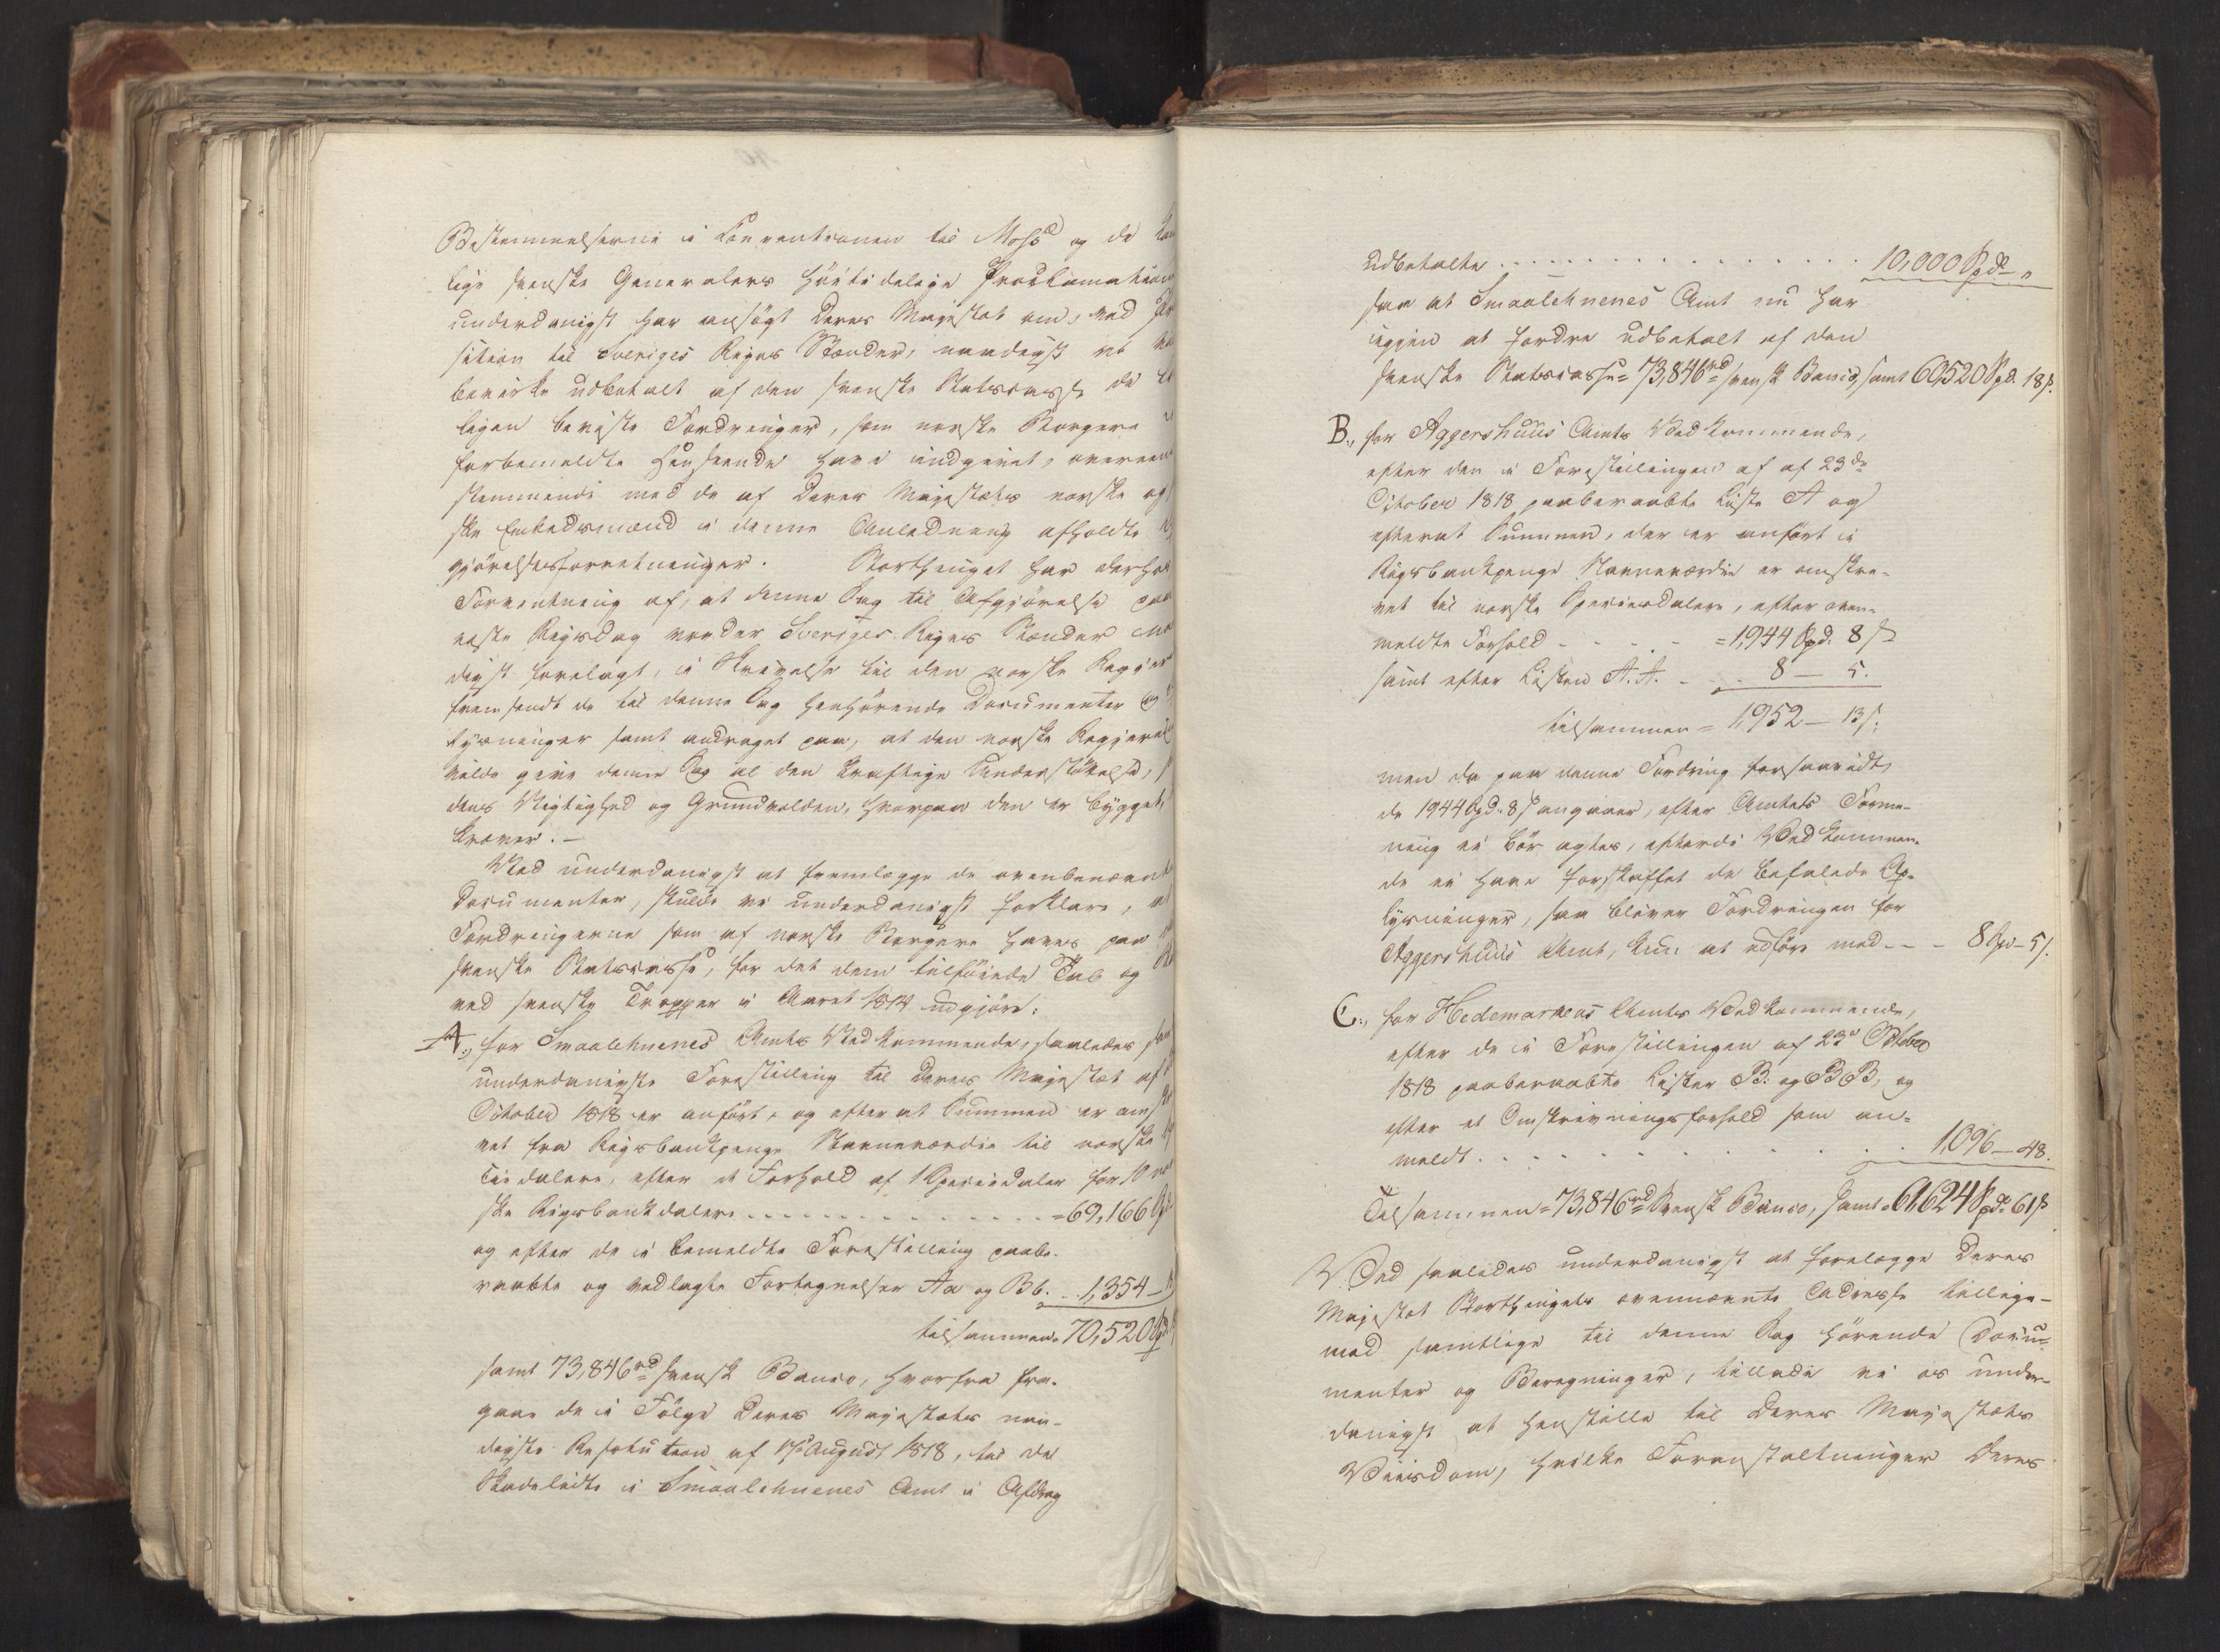 Bestemmelserne i Conventionen til Moss og de
lige svenske Generalers höitidelige Proclamation
underdanigst har ansögt Deres Majestæt om, ved
sition til Sveriges Riges Stænder, naadigst at
bevirke udbetalt af den svenske Statscasse de
ligen beviste Fordringer, som norske Borgere
forbemeldte Henseende have indgivet, overeens
stemmende med de af Deres Majestæts norske og
ske Embedsmænd i denne Anledning afholdte
gjörelsesforretninger. Storthinget har derhos
Forventning af, at denne Sag til Afgjörelse paa
næste Rigsdag vorder Sveriges Riges Stænder
digst forelagt, i Skrivelse til den norske Regjer
fremsendt de til denne Sag henhörende Documenter og
lysninger samt andraget paa, at den norske Regjering
vilde give denne Sag al den kraftige Understöttelse,
dens Vigtighed og Grundvolden, hvorpaa den er bygget,
kræver. –
Ved underdanigst at fremlægge de ovenbenævnte
Documenter, skulde vi underdanigst forklare, at
Fordringerne som af norske Borgere haves paa
svenske Statscasse, for det dem tilföiede Tab og
ved svenske Tropper i Aaret 1814 udgjöre:
A., for Smaalehnenes Amts Vedkommende, saaledes som
underdanigste Forestilling til Deres Majestæt af
October 1818 er anfört, og efterat Summen er oms
vet fra Rigsbankpenge Navneværdie til norske
ciesdalere, efter et Forhold af 1 Speciesdaler for 10
ske Rigsbankdalere ............ = 69,166 Spd
og efter de i bemeldte Forestilling paabe-
raabte og vedlagte Fortegnelser Aa og Bb. .. 1,354 –
tilsammen = 70,520 Spd
samt 73,846 rd svensk Banco, hvorfra fra-
gaae de i Fölge Deres Majestæts naa-
digste Resolution af August 1818, til de
Skadelidte i Smaalehnenes Amt i Afdrag
udbetalte ................ 10,000 Spd „
saa at Smaalehnenes Amt nu har
igjen at fordre udbetalt af den
svenske Statscasse = 73,846 rd svensk Banco, samt 60,520 Spd. 18 s.
B., for Aggershuus Amts Vedkommende,
efter den i Forestillingen af af 23de
October 1818 paaberaabte Liste A og
efterat Summen, der er anfört i
Rigsbankpenge Navneværdie er omskre-
vet til norske Speciesdalere, efter oven-
meldte Forhold - - - - = 1,944 Spd. 8 s
samt efter Listen A.A. - .. 8 – 5.
tilsammen = 1,952 – 13 s.
men da paa denne Fordring forsaavidt
de 1944 Spd. 8 s angaaer, efter Amtets Forme-
ning ei bör agtes, efterdi Vedkommen-
de ei have forskaffet de befalede Op-
lysninger, saa bliver Fordringen for
Aggershuus Amt, kun at udföre med - - - 8 Sp – 5 s.
C., for Hedemarkens Amts Vedkommende,
efter de i Forestillingen af 23de October
1818 paaberaabte Lister B. og BB, og
efter et Omskrivningsforhold som an-
meldt .............. 1,096 – 48.
Tilsammen = 73,846 rd Svensk Banco, samt = 61,624 Spd. 61 s
Ved saaledes underdanigst at forelægge Deres
Majestæt Storthingets ovennævnte Adresse tillige-
med samtlige til denne Sag hörende Docu-
menter og Beregninger, tillade vi os under-
danigst at henstille til Deres Majestæts
Viisdom, hvilke Foranstaltninger Deres